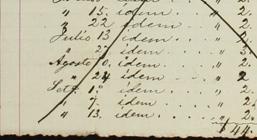 " 15. idem " 2.
" 22 idem " 2.
Julio 13 idem " 4.
" 27. idem " 3.
Agosto 10. idem " 2.
" 24 idem " 2
Set. 1º idem " 2.
" 7. idem " 2.
" 13. idem " 2.
$ 44.